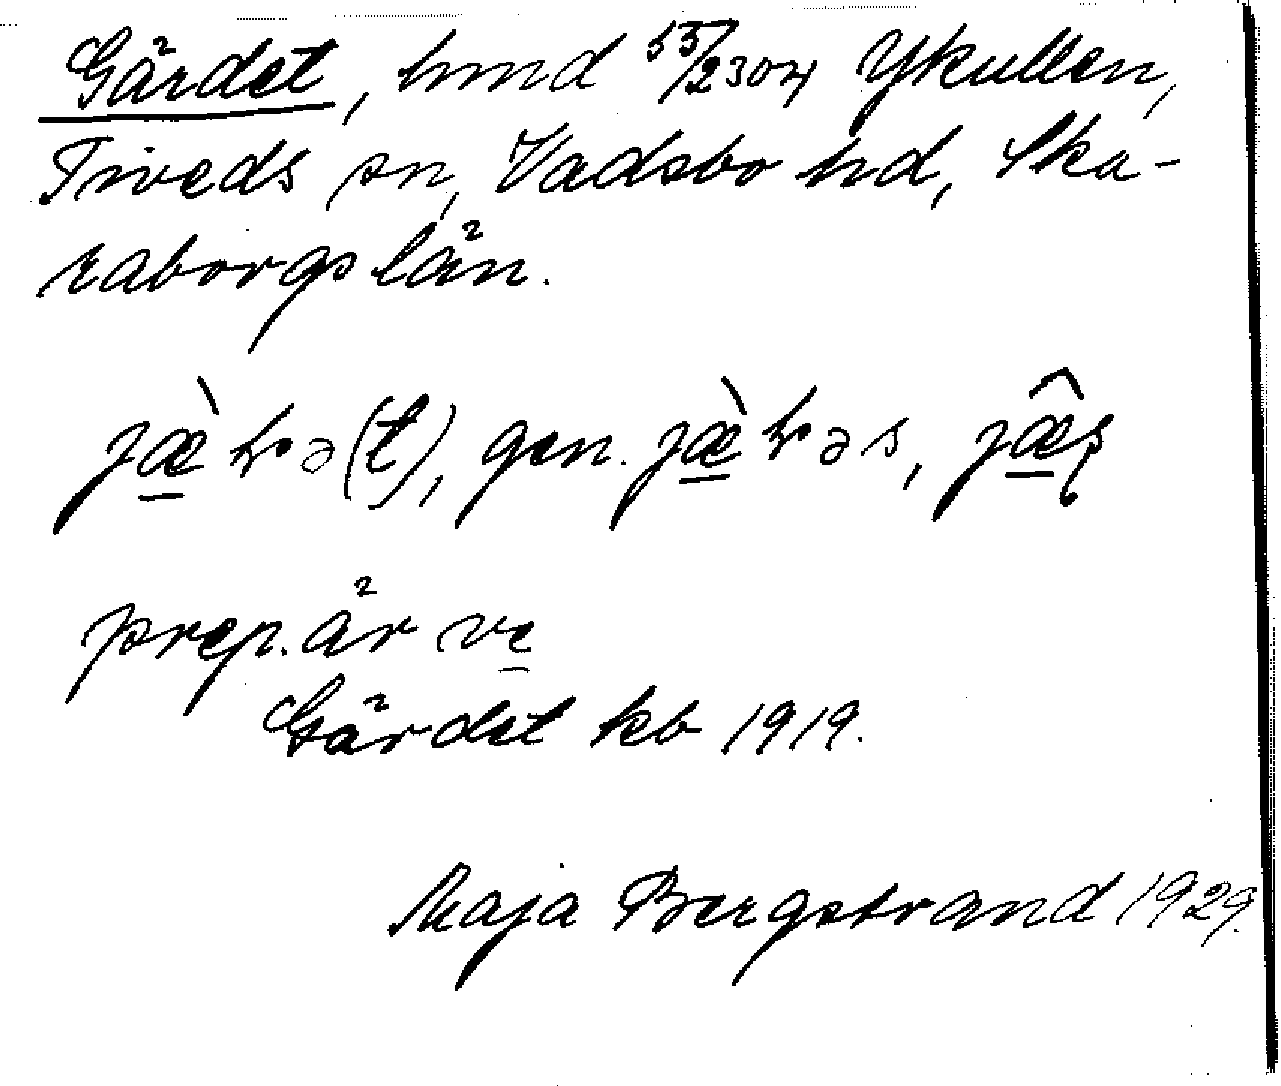 Gärdet, hmd 55/2304 Ykullen,
Tiveds sn, Vadsbo hd, Ska-
raborgs län.
jæ̲̀ ə(t), gen. jæ̲̀ əs, jæ̲̂ʂ
prep. är ve̲
Gärdet kb 1919.
Maja Bergstrand 1929.